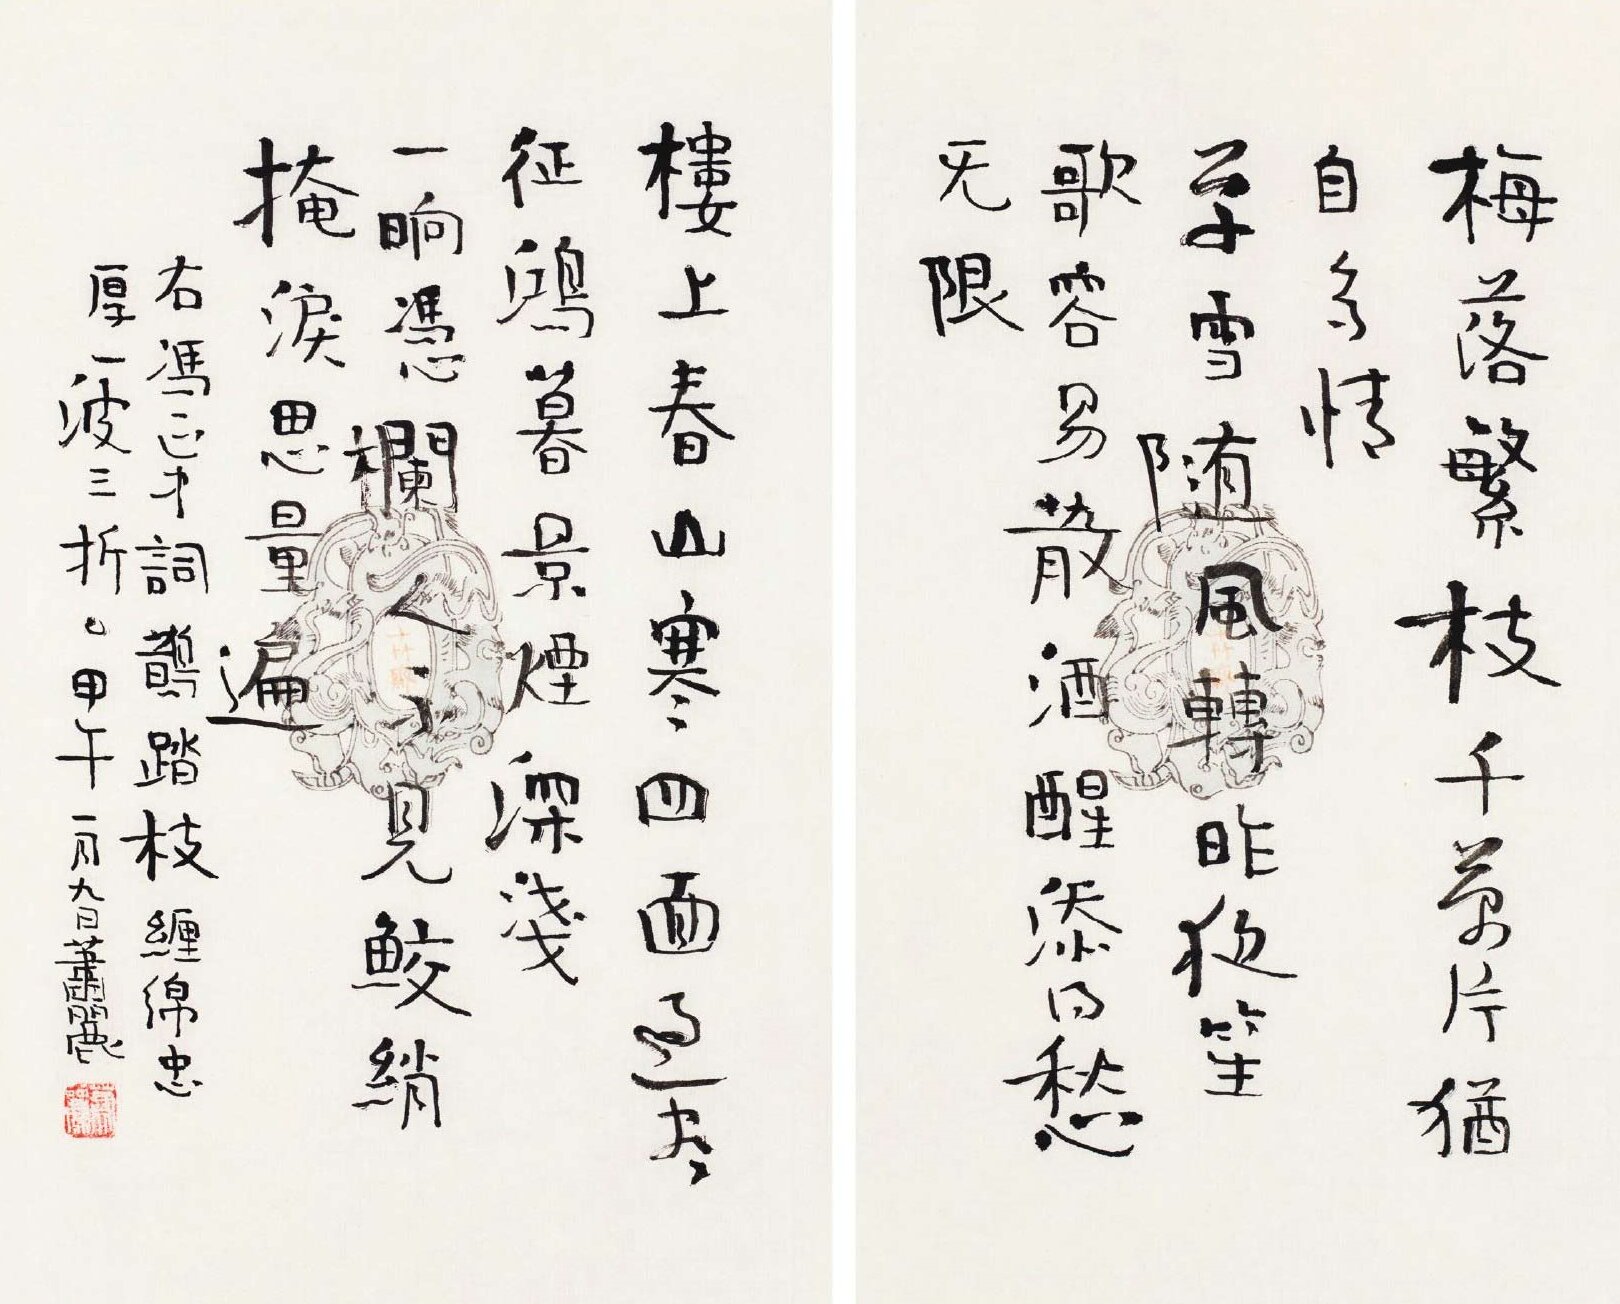 梅落繁枝千萬片猶
自多情
学雪随風轉昨夜笙
歌容易散酒醒添得愁
无限
樓上春山寒四面過尽
征鴻暮景煙深淺
一晌憑欄人不見鮫綃
掩淚思量遍
右馮正中詞鵲踏枝纏綿忠
厚一波三折甲午一月九日蕭麗